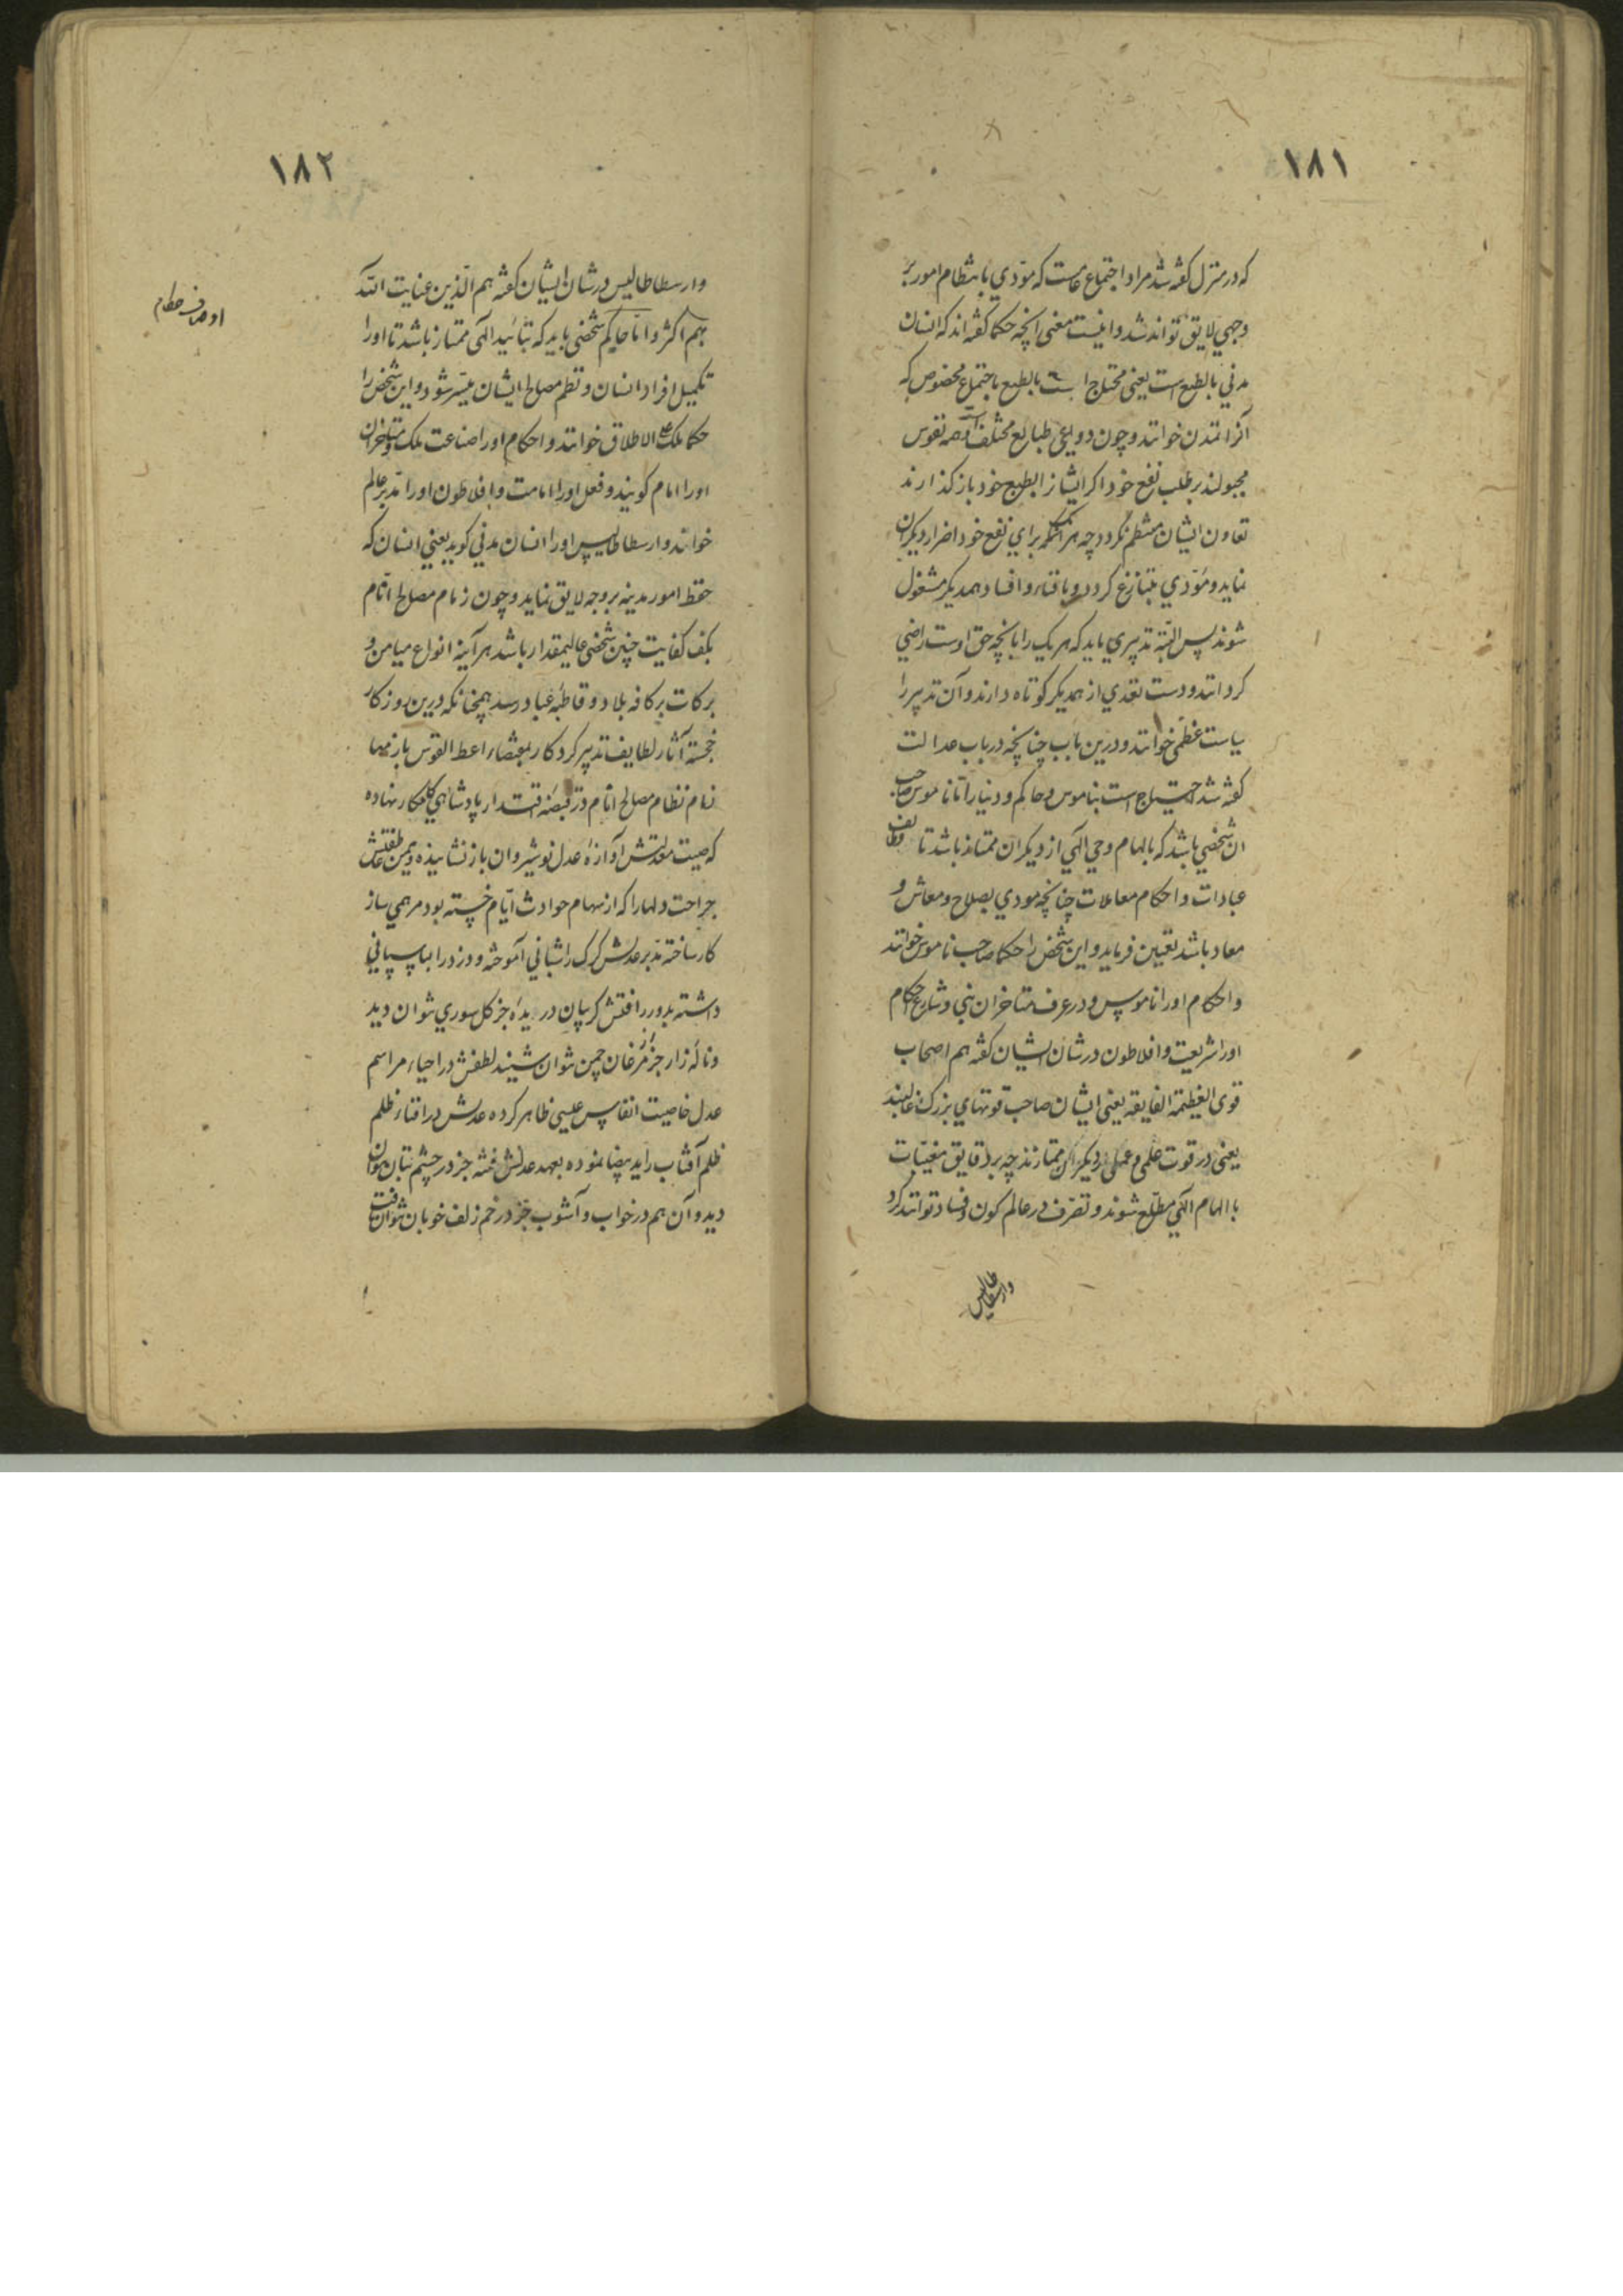 ۱۸۱
که در منزل کفته شد مراد اجتماع خاصست که مؤدي بانتظام امور بر
وجهي لایق تواند شد و اینست معنی انچه حکما کفته اند که انسان
مدني بالطبع است یعنی محتاج است بالطبع باجتماع مخصوص که
آنرا تمدن خوانند و چون دواعی طبایع مختلف است و همه نفوس
مجبولند بر طلب نفع خود اکر ایشانرا بطبع خود باز کذارند
تعاون ایشان منتظم نکردد چه هر یک براي نفع خود اضرار دیکران
نماید و مؤدي بتنازع کردد و بافناء و افساد همدیکر مشغول
شوند پس البته تدبیري باید که هر یک را بانچه حق اوست راضي
کردانند و دست تعدي از همدیکر کوتاه دارند و آن تدبیر را
سیاست عظمی خوانند و درین باب چنانچه در باب عدالت
کفته شد احتیاج است بناموس و حاکم و دینار اما ناموس صاحب
ان شخصي باشد که بالهام و حي الهي از دیکران ممتاز باشد تا وظایف
عبادات و احکام معاملات چنانچه مودي بصلاح و معاش و
معاد باشد تعیین فرماید و این شخص را حکما صاحب ناموس خوانند
و احکام او را ناموس و در عرف متاخران نبي و شارع و احکام
او را شریعت و افلاطون در شان ایشان کفته هم اصحاب
قوی العظیمة الفایقه یعنی ایشان صاحب قوتهاي بزرک غالبند
یعنی در قوت علمی و عملی از دیکران ممتازند چه بر دقایق مغیبات
با الهام الهي مطلع شوند و تصرف در عالم کون و فساد توانند کرد
وارسطاطالیس
۱۸۲
وارسطاطالیس در شان ایشان کفته هم الذین عنایت الله
بهم اکثر و اما حاکم شخصی باید که بتائید الهی ممتاز باشد تا او را
تکمیل افراد انسان و نظم مصالح ایشان میسر شود و این شخص را
حکما ملک علی الاطلاق خوانند و احکام او را صناعت ملک و متاخران
او را امام کویند و فعل او را امامت و افلاطون او را مدبر عالم
خواند و ارسطاطالیس او را انسان مدني کوید یعني انسان که
حفظ امور مدینه بر وجه لایق نماید و چون زمام مصالح انام
بکف کفایت چنین شخصی عالیمقدار باشد هر آینه انواع میامن و
برکات بر کافه بلاد و قاطبهٔ عباد رسد همچنانکه درین روزکار
خجسته آثار لطایف تدبیر کردکار بمقتضاء اعط القوس باریها
زمام نظام مصالح انام در قبضهٔ اقتدار پادشاهي کامکار نهاده
که صیت معدلتش آوازهٔ عدل نوشیروان باز نشانیده و یمن عاطفتش
جراحت دلها را که از سهام حوادث ایام خسته بود مرهمي ساز
کار ساخته تدبر عدلش کرک را شباني آموخته و دزد را پاسباني
داشته بدور رافتش کریبان دریدهٔ جز کل سوري نتوان دید
و نالهٔ زار جز مرغان چمن نتوان شنید لطفش در احیاء مراسم
عدل خاصیت انفاس عیسی ظاهر کرده عدلش در افناء ظلم
ظلم آفتاب را ید بیضا نموده بعهد عدلش فتنه جز در چشم بتان نتوان
دید و آن هم در خواب و آشوب جز در خم زلف خوبان نتوان یافت
اوصاف حکام